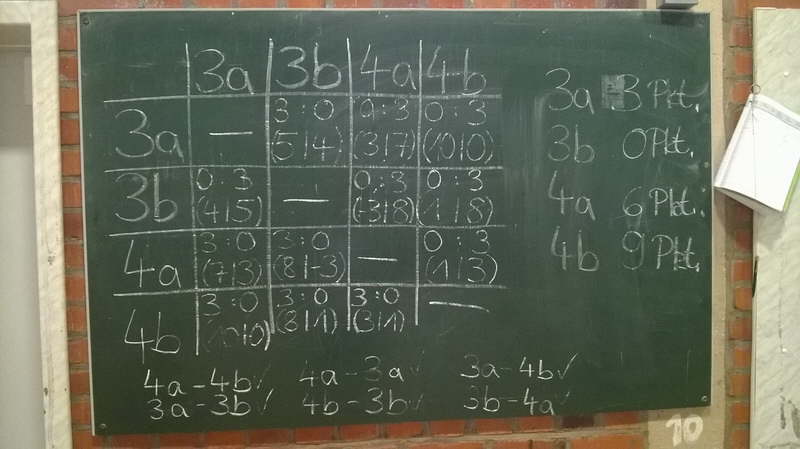 3a 3b 4a 4b
3a — 3:0 0:3 0:3
(5|4) (3|7) (10|0)
3b 0:3 — 0:3 0:3
(4|5) (-3|8) (1|8)
4a 3:0 3:0 — 0:3
(7|3) (8|-3) (1|3)
4b 3:0 3:0 3:0 —
(10|0) (8|1) (3|1)
4a-4b✓ 4a-3a✓ 3a-4b✓
3a-3b✓ 4b-3b✓ 3b-4a✓
3a 3 Pkt.
3b 0 Pkt.
4a 6 Pkt.
4b 9 Pkt.
10